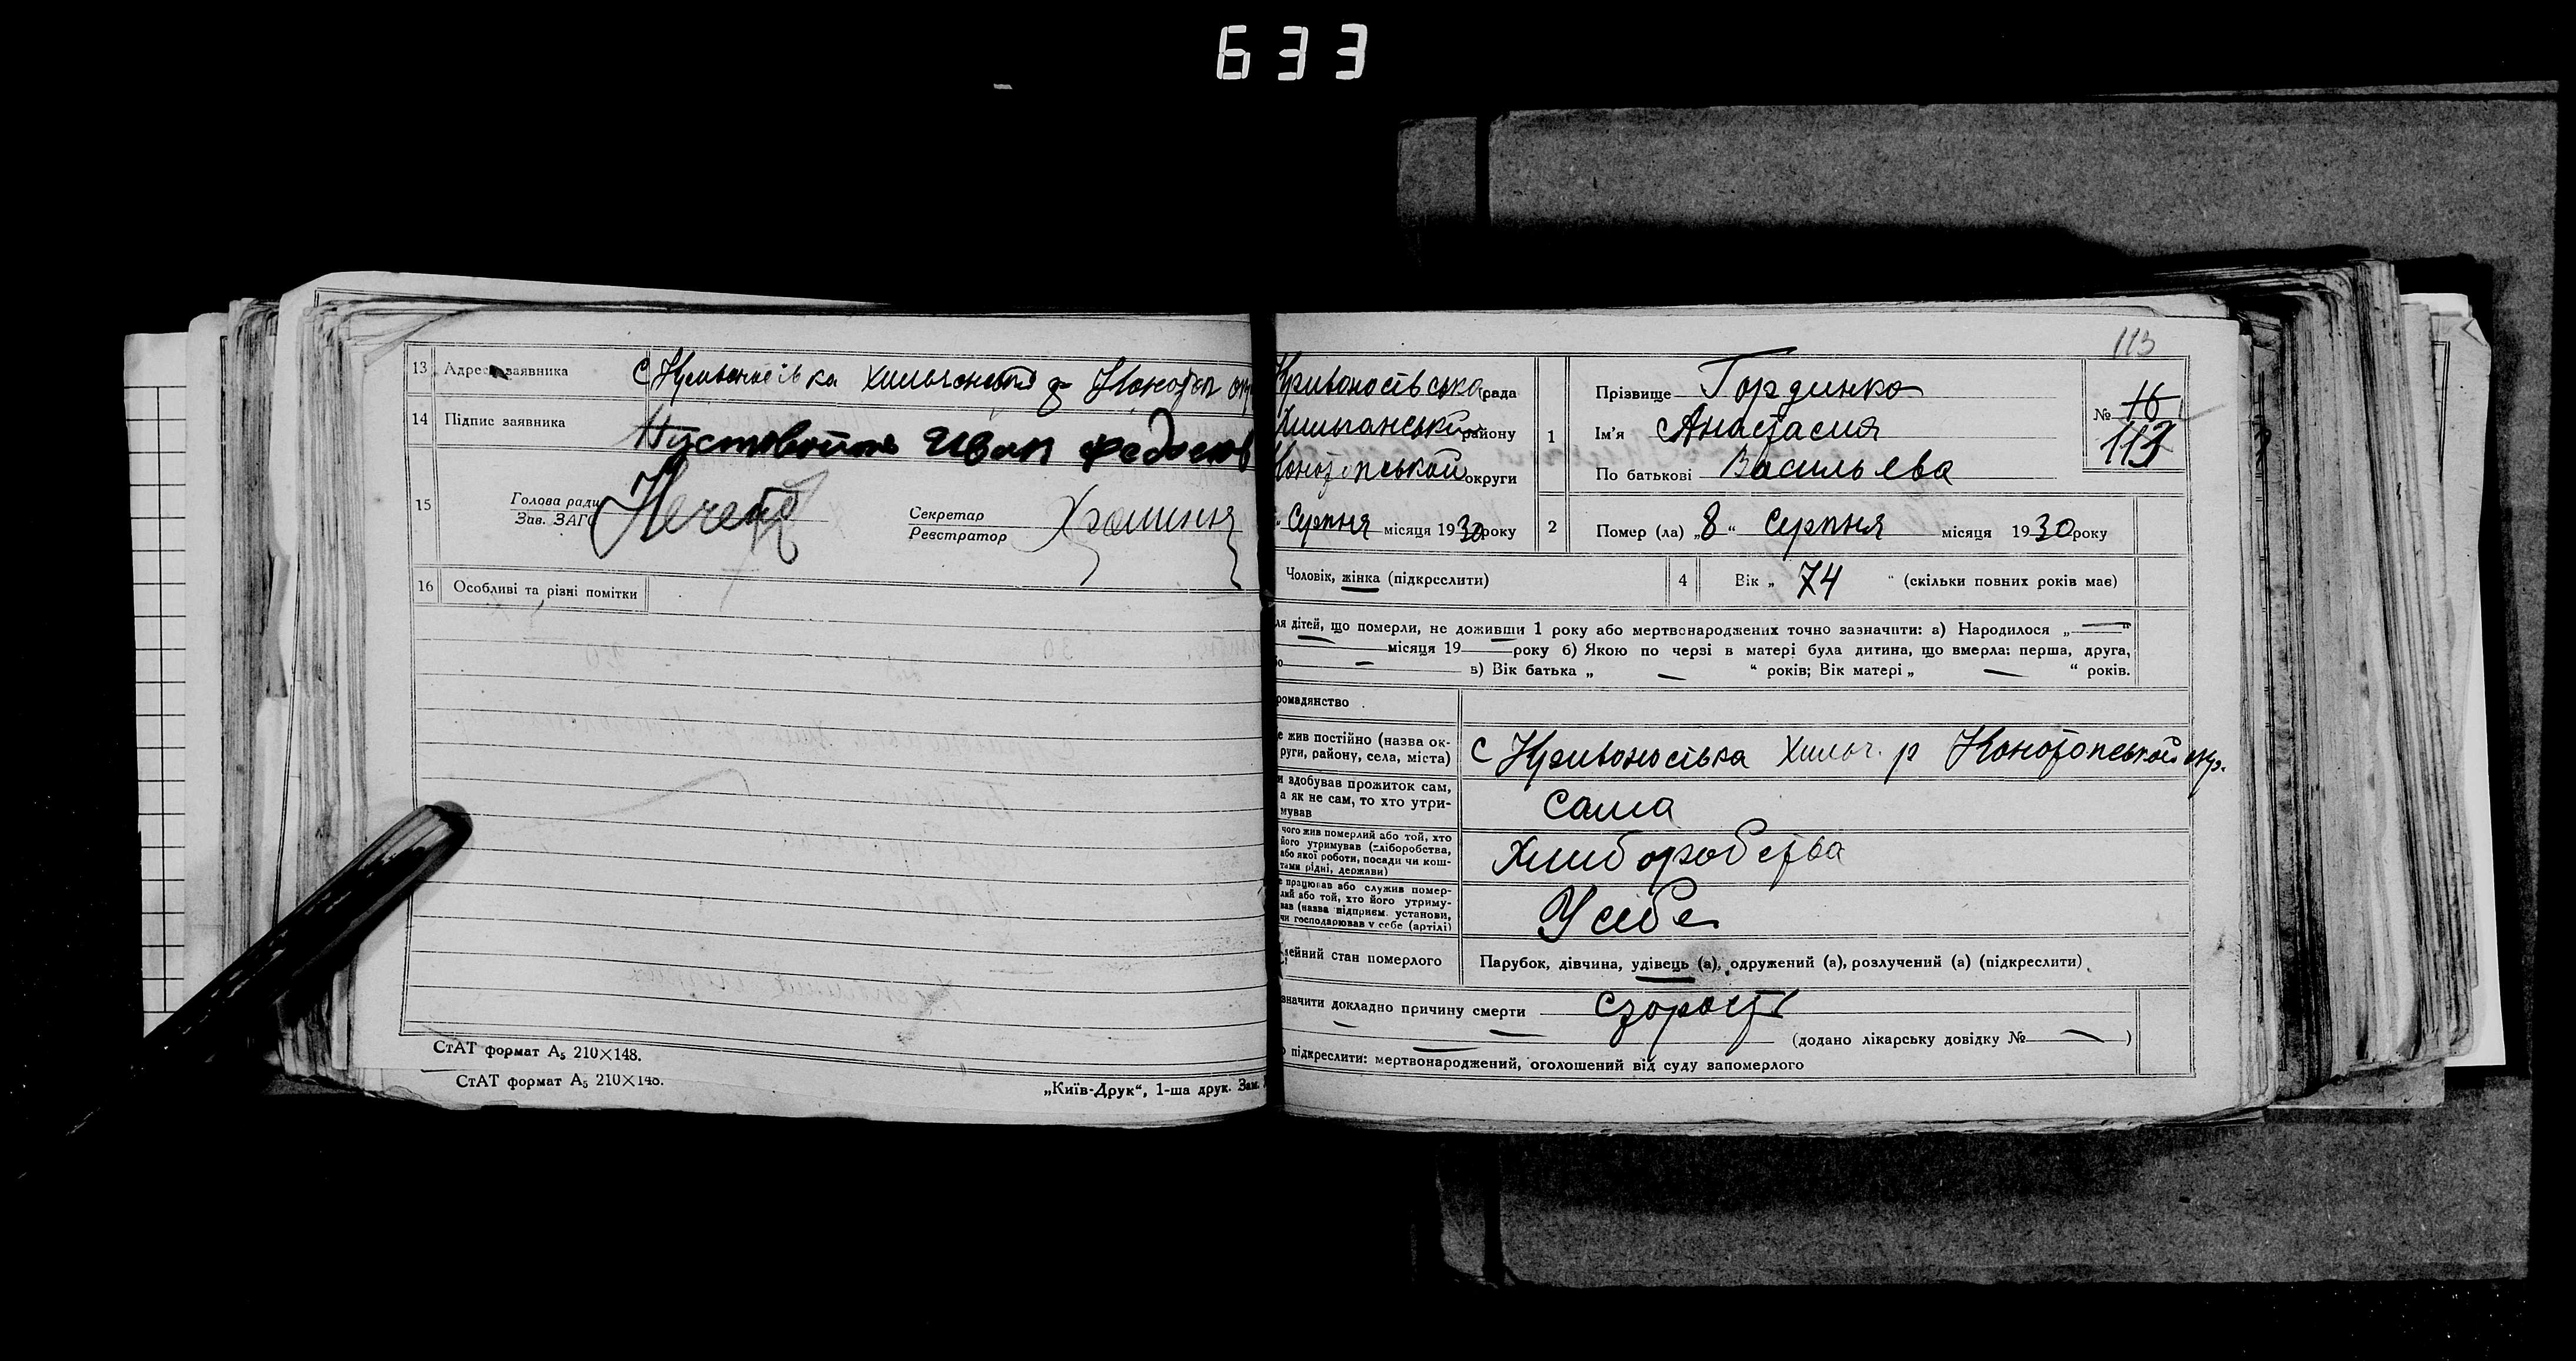 633
13 Адрес заявника С Кривоносівка Хильчанский р Конотоп окр
14 Підпис заявника Пустовойтов Иван Федосеев
15 Голова ради
Зав. ЗАГС
Секретар
Реєстратор
16 Особливі та різні помітки
СтАТ формат А5 210×148.
СтАТ формат А5 210×148.
„Київ-Друк“, 1-ша друк. Зам.
113
Кривоносівська рада
Хильчанський району
Конотопськой округи
Серпня місяця 1930 року
1 Прізвище Гординко
Ім’я Анастасия
По батькові Васильева
№ 16
113
2 Помер (ла) „8“ Серпня місяця 1930 року
Чоловік, жінка (підкреслити)
4 Вік „ 74 “ (скільки повних років має)
ля дітей, що померли, не доживши 1 року або мертвонароджених точно зазначити: а) Народилося „—“
місяця 19— року б) Якою по черзі в матері була дитина, що вмерла: перша, друга,
бо — в) Вік батька „ — “ років; Вік матері „ — “ років.
ромадянство
е жив постійно (назва ок-
руги, району, села, міста)
С Кривоносівка Хильч. р Конотопськой окр.
и здобував прожиток сам,
а як не сам, то хто утри-
мував
сама
чого жив померлий або той, хто
його утримував (хліборобства,
або якої роботи, посади чи кош-
тами рідні, держави)
Хлиборобства
е працював або служив помер-
лий або той, хто його утриму-
вав (назва підприєм. установи,
чи господарював у себе (артілі)
У сібе
мейний стан померлого
Парубок, дівчина, удівець (а), одружений (а), розлучений (а) (підкреслити)
значити докладно причину смерти старості
(додано лікарську довідку № — )
о підкреслити: мертвонароджений, оголошений від суду запомерлого